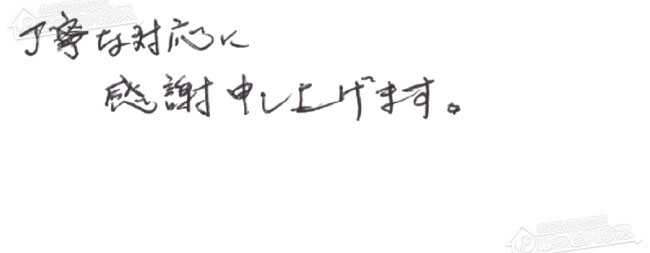 丁寧な対応に
感謝申し上げます。